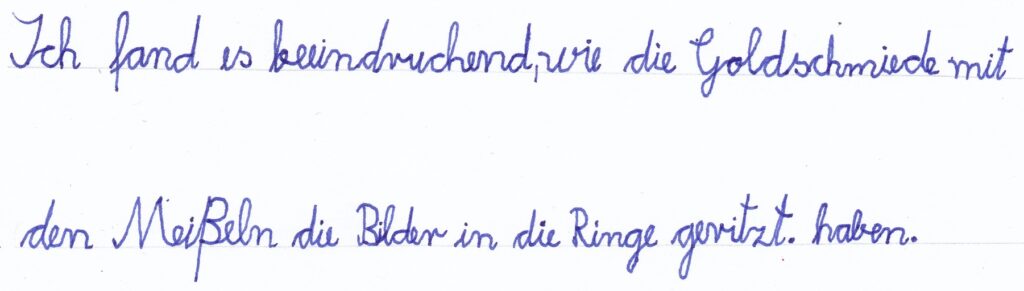 Ich fand es beeindruchend, wie die Goldschmiede mit
den Meißeln die Bilder in die Ringe geritzt. haben.